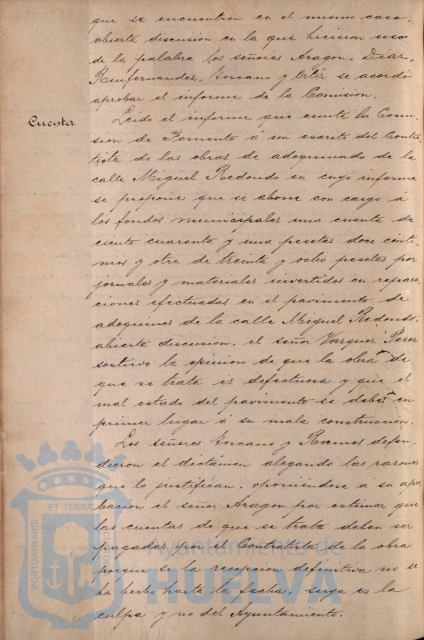 que se encuentren en el mismo caso;
abierta discusión en la que hicieron uso
de la palabra los señores Aragon, Diaz,
Renfernandez, Toscano y Ortiz se acordó
aprobar el informe de la Comision.
Cuenta
Leido el informe que emite la Comi-
sion de Fomento á un escrito del Contra-
tista de las obras de adoquinado de la
calle Miguel Redondo en cuyo informe
se propone que se abone con cargo á
los fondos municipales una cuenta de
ciento cuarenta y una pesetas doce cénti-
mos y otra de treinta y ocho pesetas por
jornales y materiales invertidos en repara-
ciones efectuadas en el pavimento de
adoquines de la calle Miguel Redondo;
abierta discusión, el señor Vazquez Perez
sostuvo la opinion de que la obra de
que se trata es defectuosa y que el
mal estado del pavimento se debe en
primer lugar á su mala construcción.
Los señores Toscano y Ramos defen-
dieron el dictámen alegando las razones
que lo justifican, oponiendose á su apro-
bacion el señor Aragon por estimar que
las cuentas de que se trata deben ser
pagadas por el Contratista de la obra
porque si la recepcion definitiva no se
ha hecho hasta la fecha, suya es la
culpa y no del Ayuntamiento.
PORTUS MARIS ET TERRAE CUSTODIA
Ayuntamiento de
HUELVA